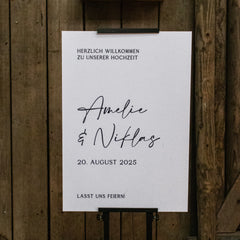 HERZLICH WILLKOMMEN
ZU UNSERER HOCHZEIT
Amelie
& Niklas
20. AUGUST 2025
LASST UNS FEIERN!